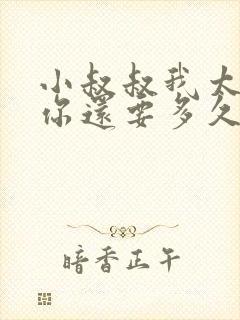 小叔叔我大
你還要多久
暗香正午